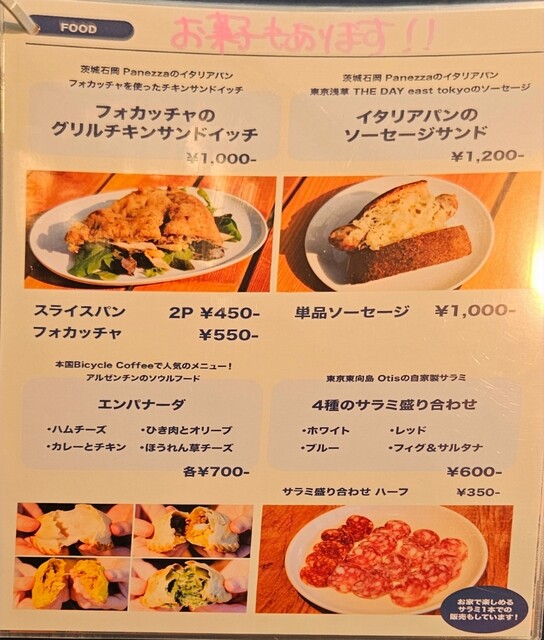 FOOD
お菓子もあります!!
茨城石岡 Panezzaのイタリアパン
フォカッチャを使ったチキンサンドイッチ
フォカッチャの
グリルチキンサンドイッチ
¥1,000-
茨城石岡 Panezzaのイタリアパン
東京浅草 THE DAY east tokyoのソーセージ
イタリアパンの
ソーセージサンド
¥1,200-
スライスパン 2P ¥450-
フォカッチャ ¥550-
単品ソーセージ ¥1,000-
本国Bicycle Coffeeで人気のメニュー!
アルゼンチンのソウルフード
エンパナーダ
・ハムチーズ ・ひき肉とオリーブ
・カレーとチキン ・ほうれん草チーズ
各¥700-
東京東向島 Otisの自家製サラミ
4種のサラミ盛り合わせ
・ホワイト ・レッド
・ブルー ・フィグ&サルタナ
¥600-
サラミ盛り合わせ ハーフ ¥350-
お家で楽しめる
サラミ1本での
販売もしています!